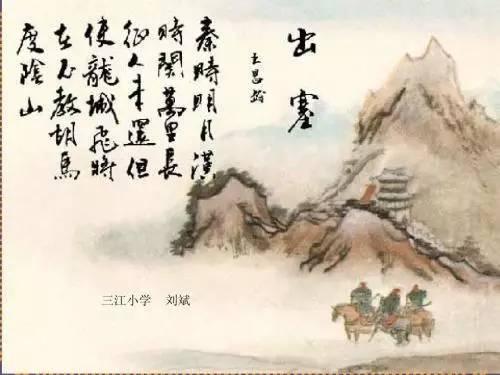 出塞
王昌龄
秦時明月漢
時関萬里長
征人未還但
使龍城飛将
在不教胡馬
度陰山
三江小学 刘斌